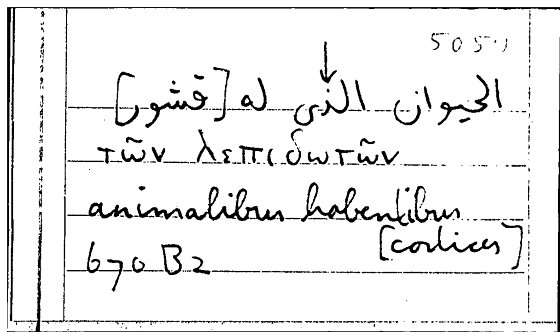 505
↓
الحيوان الذى له [قشور]
τῶν λεπιδωτῶν
animalibus habentibus
[cortices]
670 B2